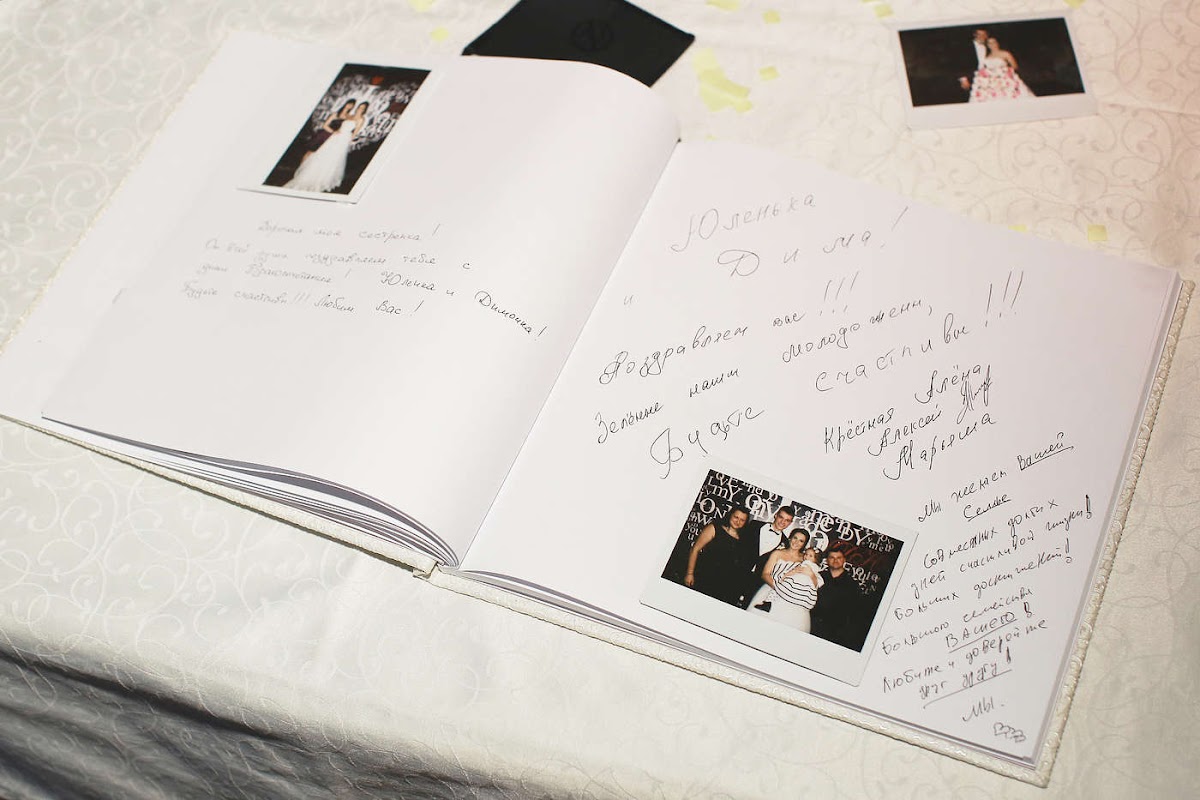 Дорогая моя сестренка!
От всей души поздравляем тебя с
днем Бракосочетания! Юленька и Димочка!
Будьте счастливы!!! Любим Вас!
Юленька
и Дима!
Поздравляем вас!!!
Зелённые наши молодожёны,
Будьте счастливы!!!
Крёстная Алёна
Алексей
Марьяша
Мы желаем Вашей
Семье
Совместных долгих
дней счастливой жизни!
Больших достижений!
Большого семейства
ВАШЕГО!
Любите и доверяйте
друг другу!
МЫ.